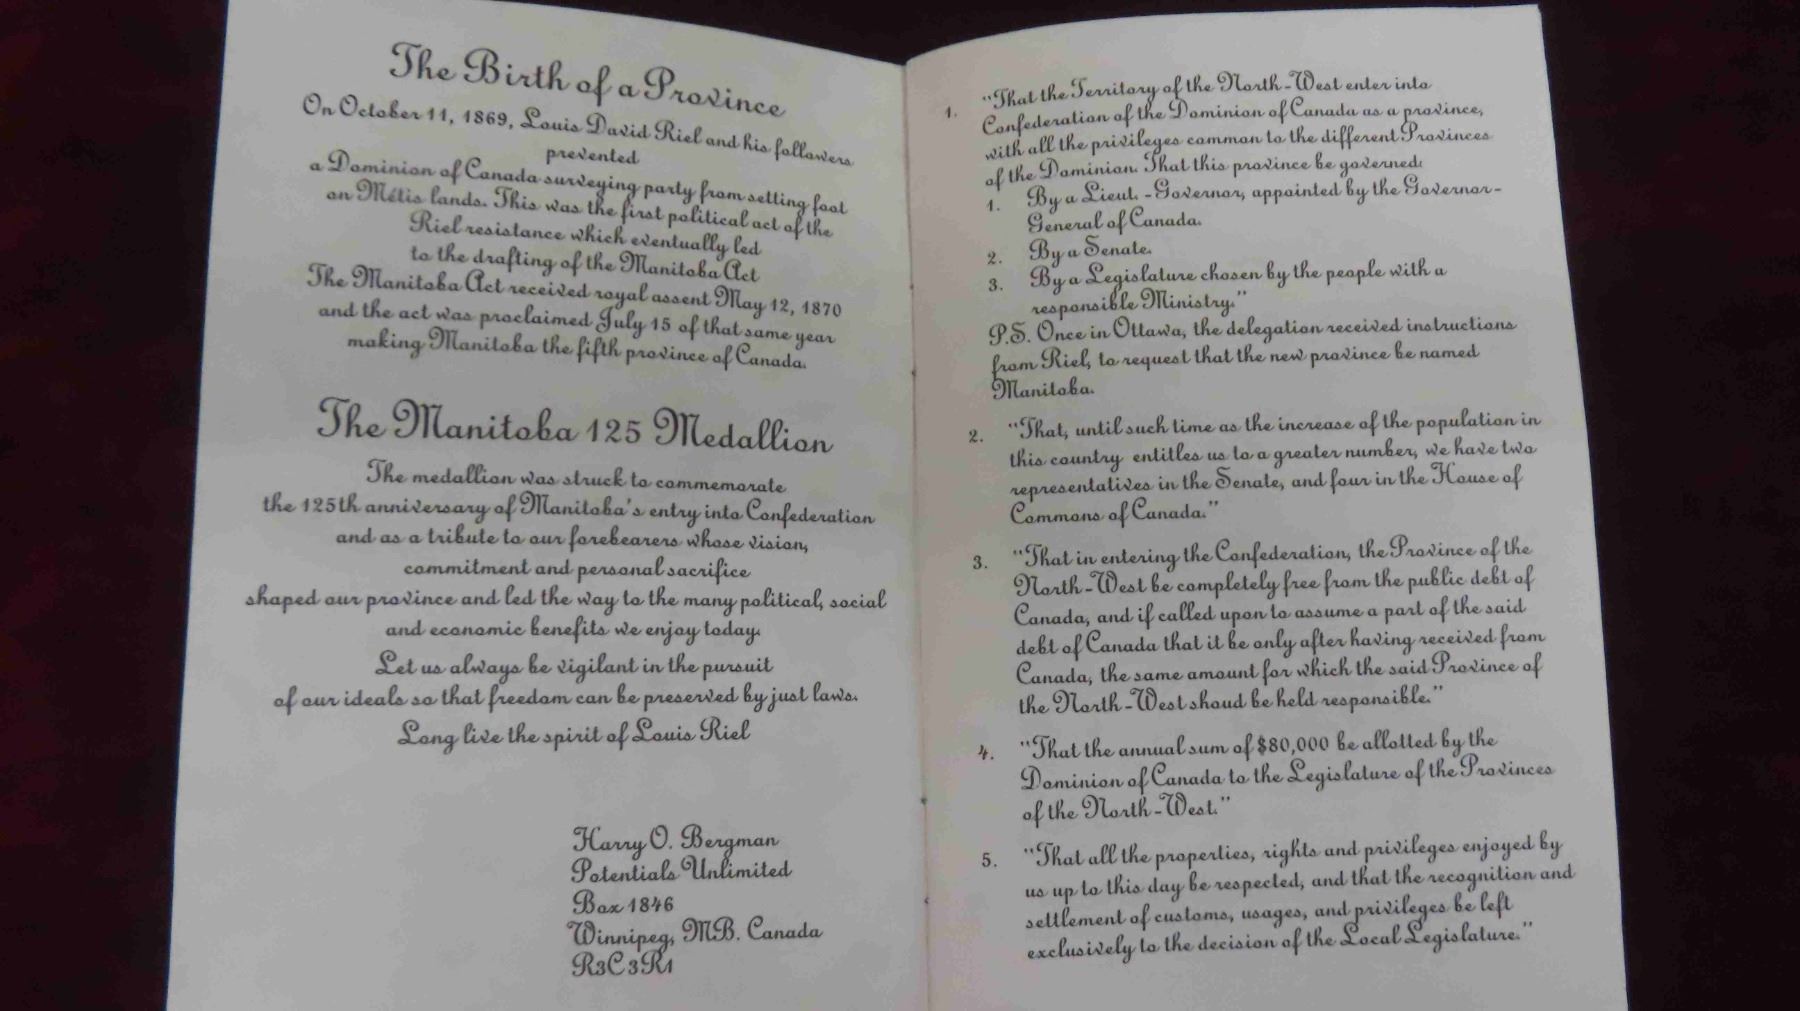 The Birth of a Province
On October 11, 1869, Louis David Riel and his followers
prevented
a Dominion of Canada surveying party from setting foot
on Métis lands. This was the first political act of the
Riel resistance which eventually led
to the drafting of the Manitoba Act
The Manitoba Act received royal assent May 12, 1870
and the act was proclaimed July 15 of that same year
making Manitoba the fifth province of Canada.
The Manitoba 125 Medallion
The medallion was struck to commemorate
the 125th anniversary of Manitoba's entry into Confederation
and as a tribute to our forebearers whose vision,
commitment and personal sacrifice
shaped our province and led the way to the many political, social
and economic benefits we enjoy today.
Let us always be vigilant in the pursuit
of our ideals so that freedom can be preserved by just laws.
Long live the spirit of Louis Riel
Harry O. Bergman
Potentials Unlimited
Box 1846
Winnipeg, MB. Canada
R3C3R1
1. "That the Territory of the North-West enter into
Confederation of the Dominion of Canada as a province,
with all the privileges common to the different Provinces
of the Dominion. That this province be governed:
1. By a Lieut. - Governor, appointed by the Governor-
General of Canada.
2. By a Senate.
3. By a Legislature chosen by the people with a
responsible Ministry."
P.S. Once in Ottawa, the delegation received instructions
from Riel, to request that the new province be named
Manitoba.
2. "That, until such time as the increase of the population in
this country entitles us to a greater number, we have two
representatives in the Senate, and four in the House of
Commons of Canada."
3. "That in entering the Confederation, the Province of the
North-West be completely free from the public debt of
Canada, and if called upon to assume a part of the said
debt of Canada that it be only after having received from
Canada, the same amount for which the said Province of
the North-West shoud be held responsible."
4. "That the annual sum of $80,000 be allotted by the
Dominion of Canada to the Legislature of the Provinces
of the North-West."
5. "That all the properties, rights and privileges enjoyed by
us up to this day be respected, and that the recognition and
settlement of customs, usages, and privileges be left
exclusively to the decision of the Local Legislature."